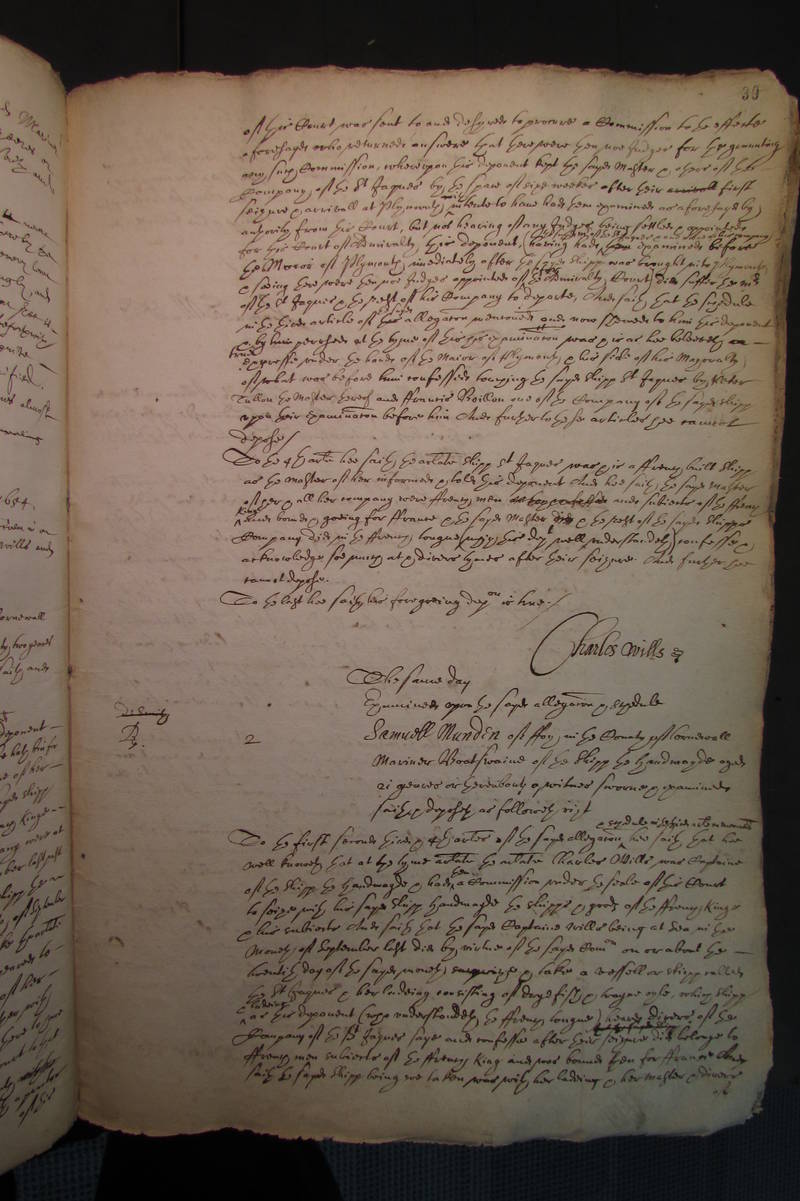 39
of this Court was sent to and desyred to procure a Commission to the effecte
aforesayd who returned answere that there were then noe Judges for the graunting
any such Commission, whereupon this deponent kept the sayd Master & others of his
Company of the St Jaques by the space of six weekes after their arrivall first
seizure & arrivall at Plymouth, intente to have had them examined as aforesayd by
authority from this Court, but not hearing of any Judges being setled & appointed
for this Court of Admiralty, this deponent, (having had them examined before
the Maior of Plymouth, imediately after the sayd shipp was brought into Plymouth
& seeing there were then noe Judges appointed of the Admiralty Court did suffer the Mr
of the St Jaques & the rest of his Company to departe, And saith that the scedule
in the third article of this allegacon mentioned and now shewed to him this deponent
& by him perused at the tyme of this his examinacon was & is as hee beleeveth a
true expresse under the hand of the Maior of Plymouth & his seale of his Mayoralty
of what was before him confessed touching the sayd shipp St Jaques by Peter
Tullon the Master thereof and ffrancis Roillon one of the Company of the sayd shipp
upon their examinacon before him And further to these articles hee cannot
depose/
To the 4th article hee saith the arlate shipp St Jaques was & is a ffrench built shipp
as the Master of her informed & told this deponent And hee saith the sayd Master
of her & all her company were ffrench men and subiects of the ffrench
King and bound & goeing for ffrance & the sayd Master & the rest of the sayd shipps
Company did in the ffrench tongue (which this dept well understandeth) confesse &
acknowledge soe much at & divers tymes after their seizure And further hee
cannot depose.
To the last hee saith his foregoeing depon is true./
Charles Wills
The same day
Examined upon the sayd allegacon & scedule
2
Samuell Mundin of ffoy in the County of Cornewall
Mariner Boatswaine of the Shipp the Handmayde aged
21 yeares or thereabouts a witnes sworne & examined
saith & deposeth as followeth vizt
To the first second third & 4th articles of the sayd allegacon & scedule in the third article mentioned hee saith that hee
well knoweth that at the tyme arlate the arlate Charles Wills was Captaine
of the shipp the Handmayde & had then a Commission under the seale of this Court
to seize with his sayd shipp Handmayde the shipps & goods of the ffrench King
& his subiects And saith that the sayd Captaine Wills being at sea in the
Moneth of September last did by virtue of the sayd Comn on or about the
twentith day of the sayd moneth, surprize & take a vessell or shipp called
the St Jaques & her ladeing consisting of drye fish & trayne oyle, which shipp
& ladeing as this deponent (who understandeth the ffrench tongue) heard divers of the
Company of the St Jaques saye and confesse after their seizure did belonge to
ffrench men subiects of the ffrench King and was bound then for ffrance And
saith the sayd shipp being soe taken was with her ladeing & her Master & divers
of